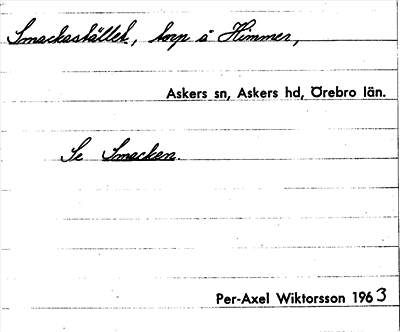 Smackastället, torp å Himmer,
Askers sn, Askers hd, Örebro län.
Se Smacken.
Per-Axel Wiktorsson 1963